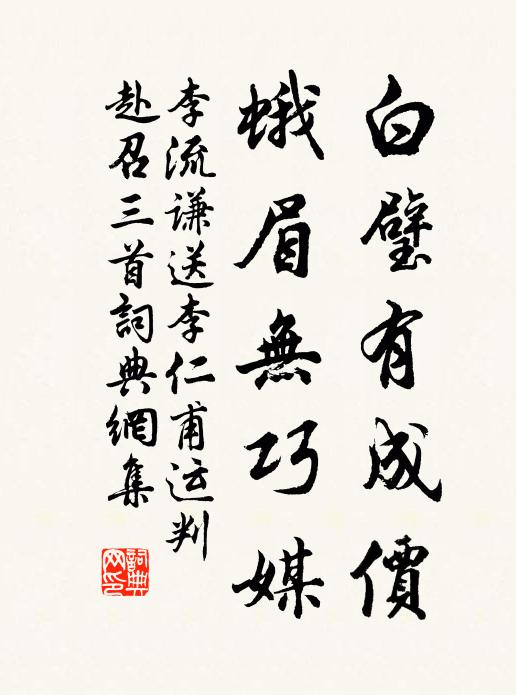 白璧有成價
蛾眉無巧媒
李流謙送李仁甫运判
赴召三首詞典網集
詞典网印